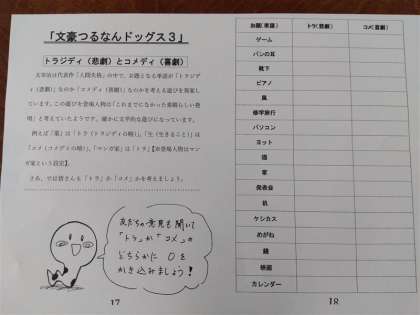 「文豪つるなんドッグス3」
トラジディ(悲劇)とコメディ(喜劇)
太宰治は代表作「人間失格」の中で、お題となる単語が「トラジデ
ィ(悲劇)」なのか「コメディ(喜劇)」なのかを考える遊びを提案し
ています。この遊びを登場人物は「これまでになかった素晴らしい発
明」と考えていたようです。確かに文学的な遊びになっています。
例えば「薬」は「トラ(トラジディの略)」、「生(生きること)」は
「コメ(コメディの略)」、「マンガ家」は「トラ」【※登場人物はマン
ガ家という設定】。
さあ、では皆さんも「トラ」か「コメ」かを考えましょう。
友だちの意見も聞いて
「トラ」か「コメ」の
どちらかに〇を
かき込みましょう!
17
お題(単語) トラ(悲劇) コメ(喜劇)
ゲーム
パンの耳
靴下
ピアノ
風
修学旅行
パソコン
ヨット
猫
家
発表会
机
ケシカス
めがね
鏡
映画
カレンダー
18